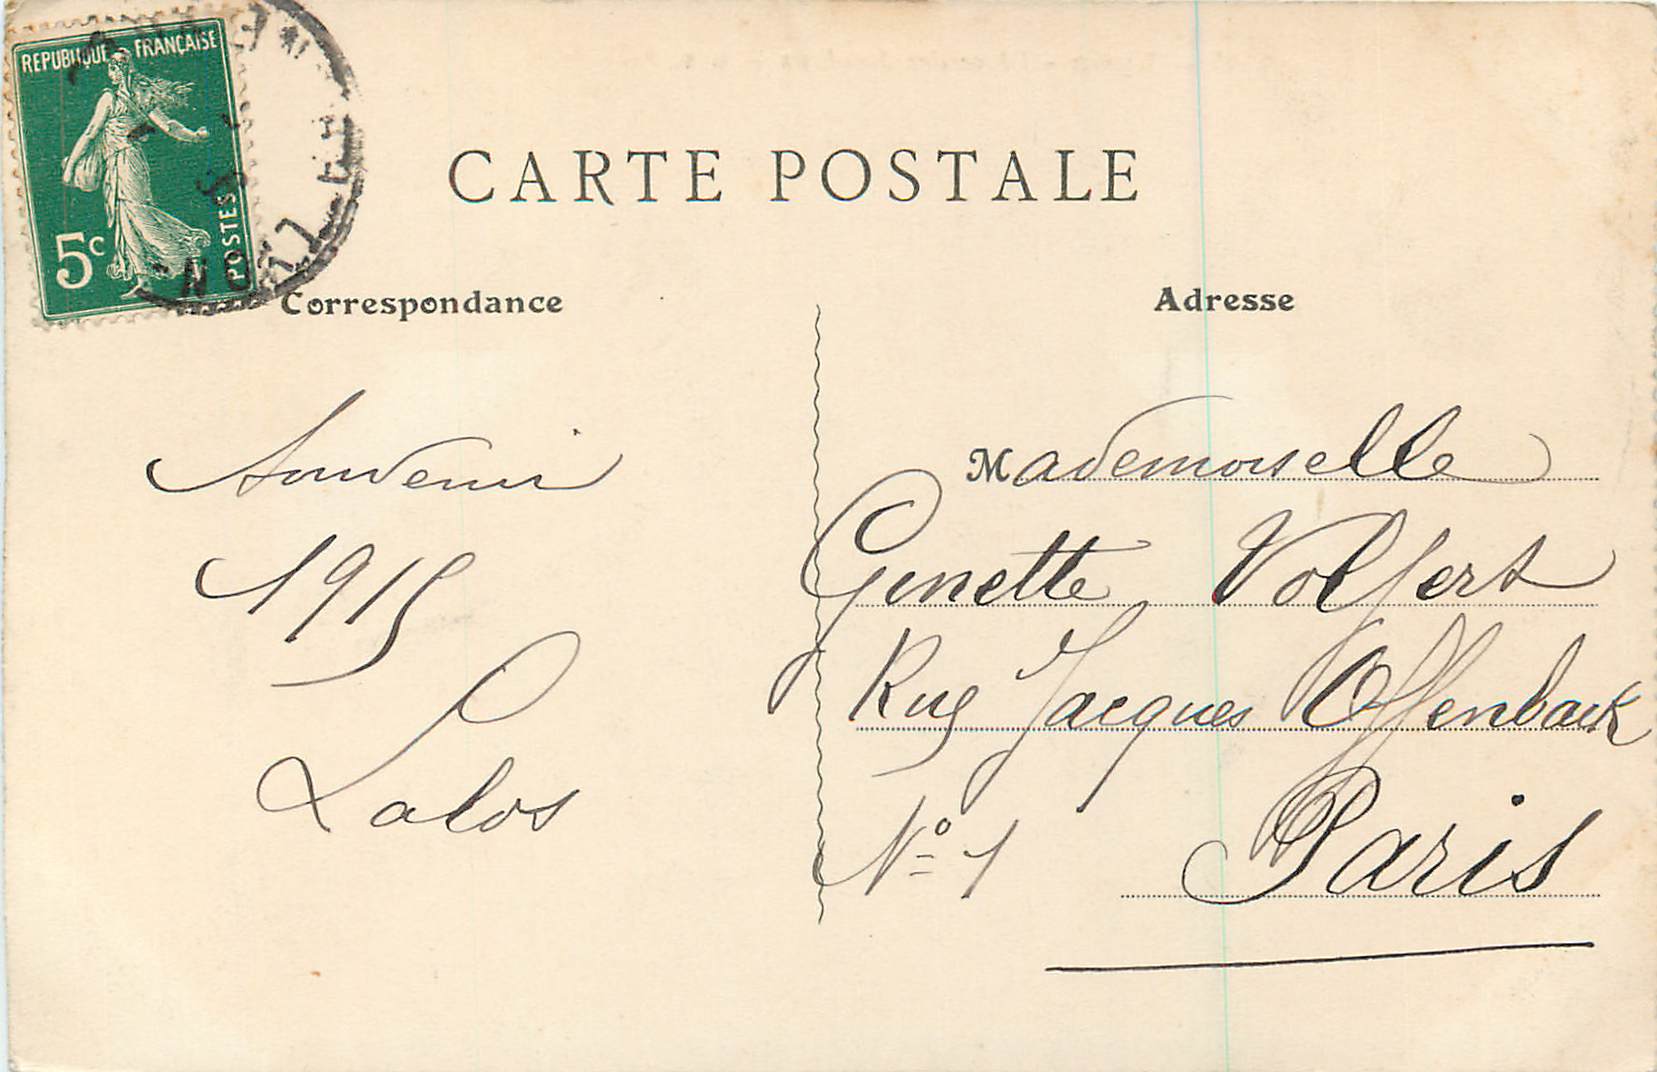 REPUBLIQUE FRANÇAISE
POSTES
5c
CARTE POSTALE
Correspondance
Adresse
Souvenir
1915
Lalos
Mademoiselle
Ginette Volfert
Rue Jacques Offenback
No 1
Paris